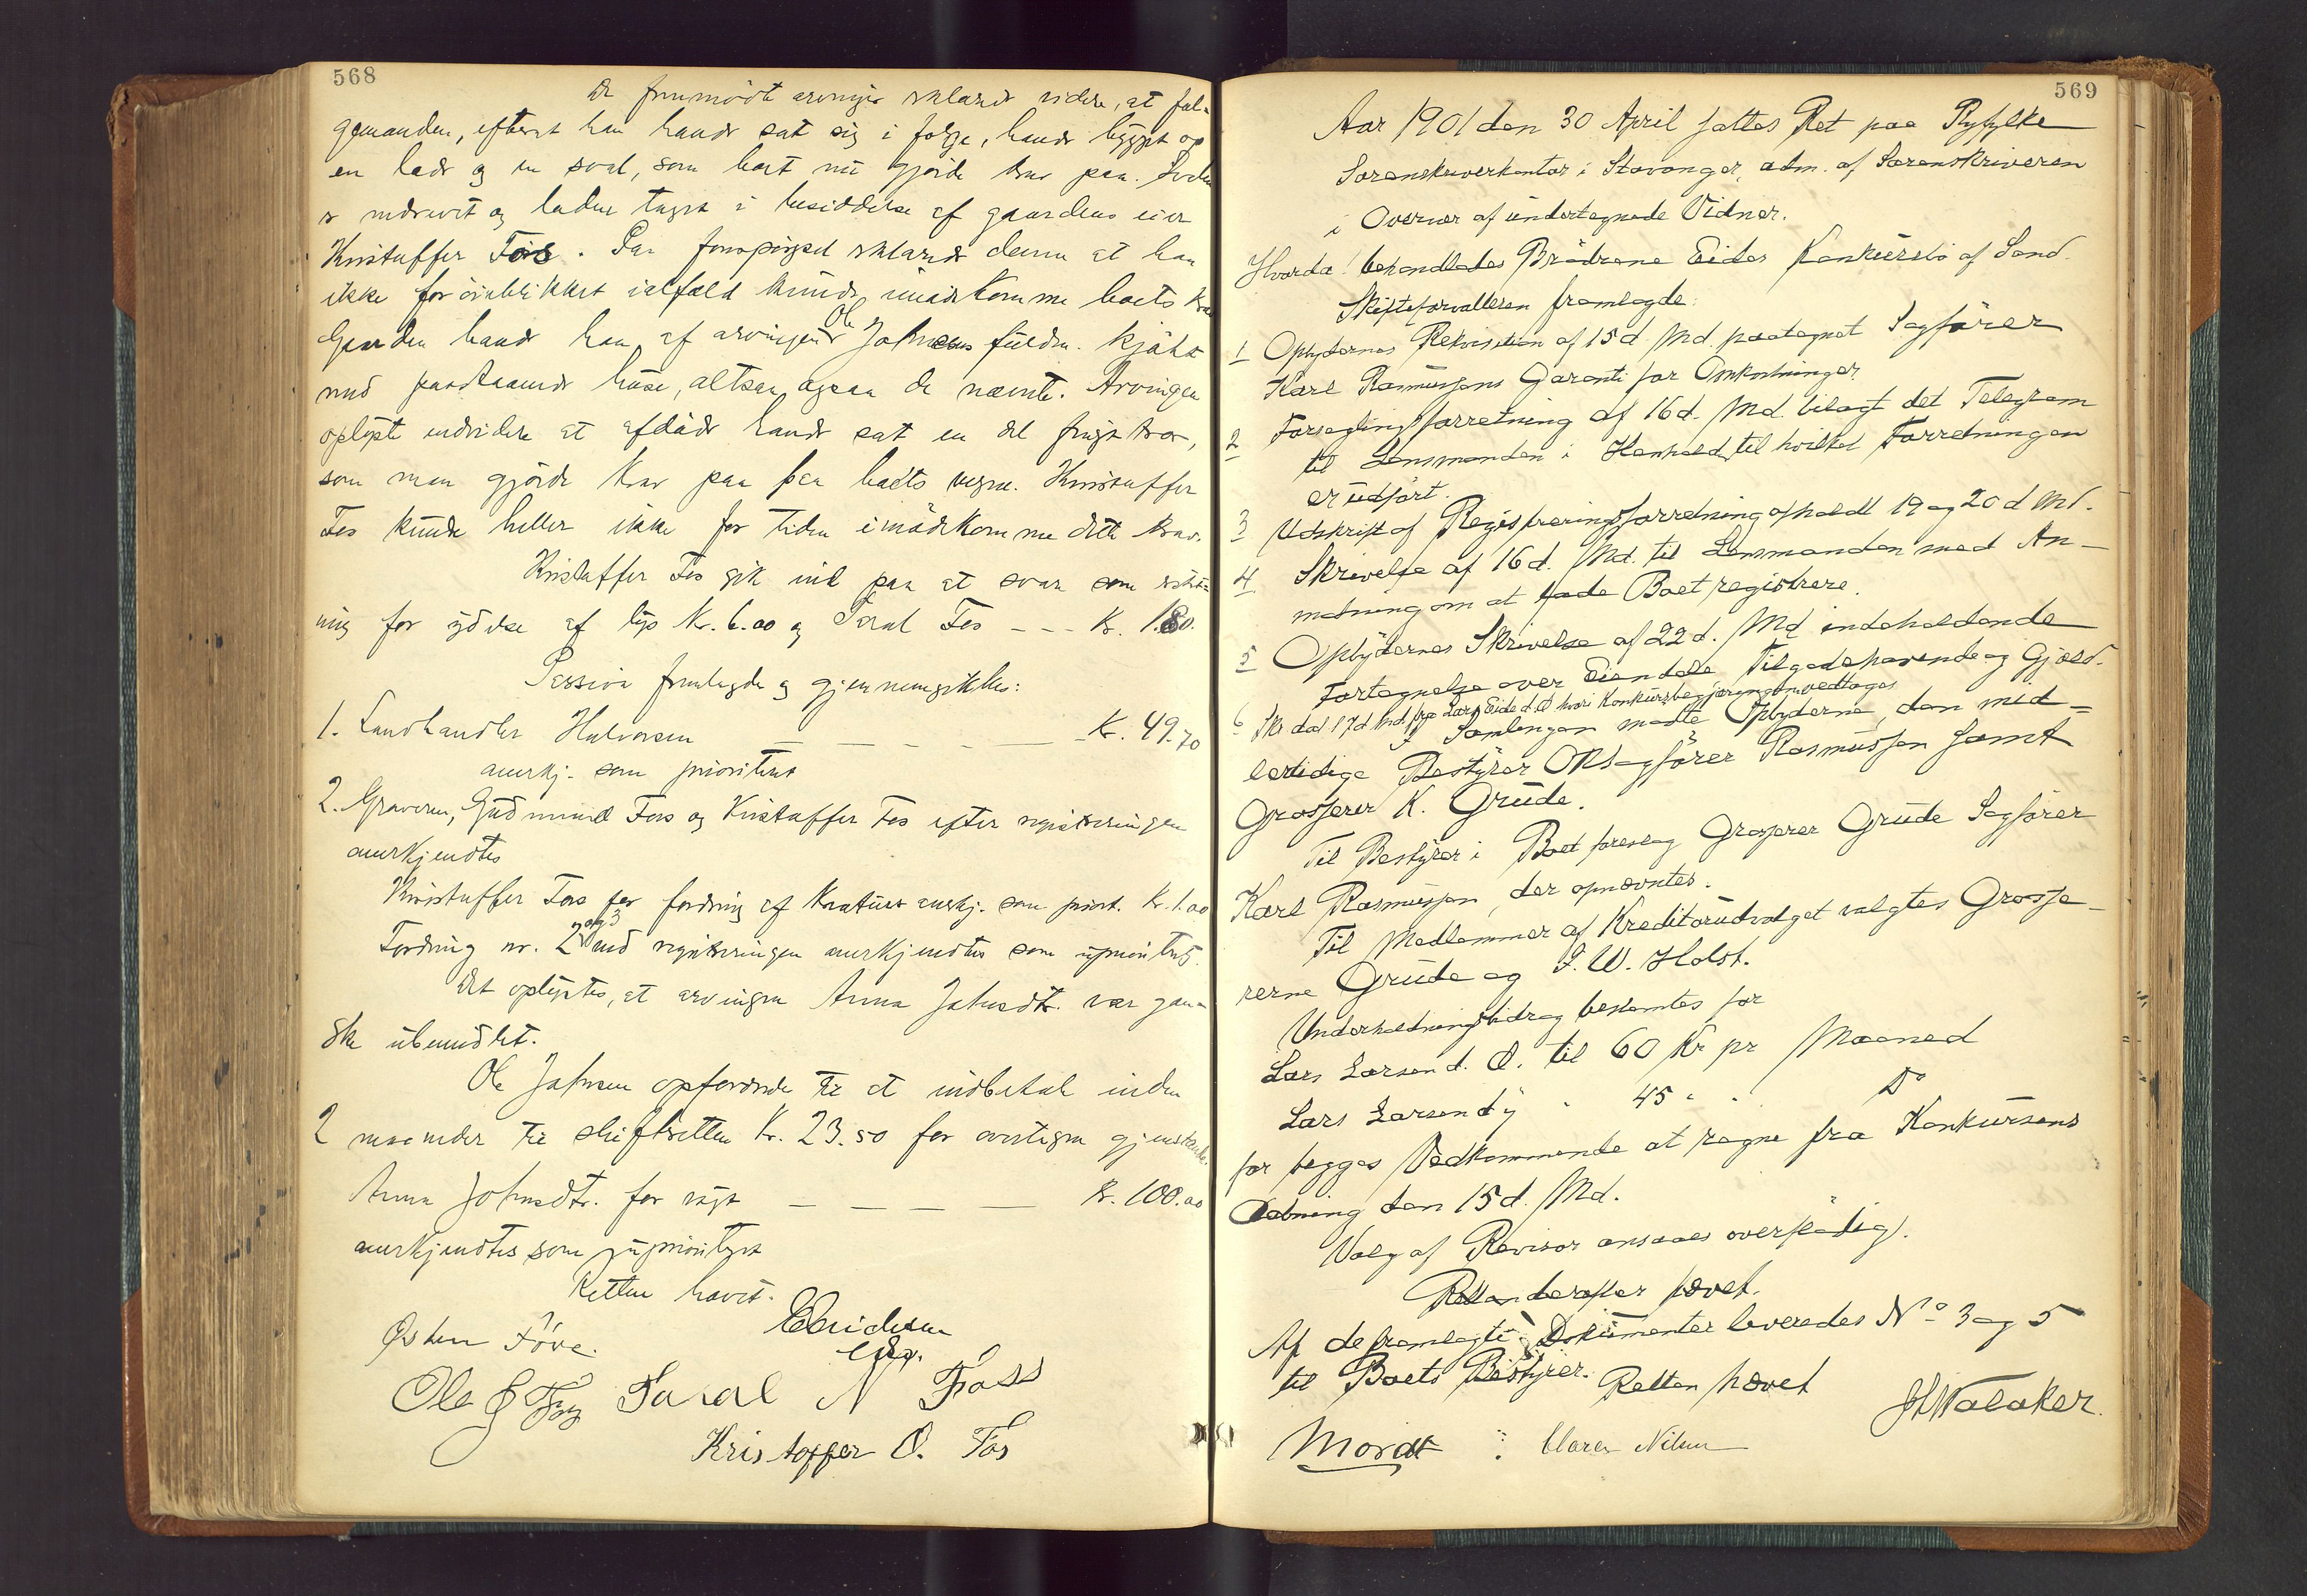 568
De fremmødte arvinger erklærede videre, at føl-
gemanden, efterat han havde sat sig i følge, havde bygget op
en lade og en sval, som boet nu gjørde krav paa. Svalen
er nedrevet og laden tagen i besiddelse af gaardens eier
Kristoffer Fos. Paa forespørgsel erklærede denne at han
ikke for øieblikket ialfald kunde imødekomme boets krav
Gaarden havde han af arvingen Ole Johnsens fuldm. kjøbt
med paastaaende huse, altsaa ogsaa de nævnte. Arvingen
oplyste endvidere at afdøde havde sat en del frugttrær,
som man gjørde krav paa paa boets vegne. Kristoffer
Fos kunde heller ikke for tiden imødekomme dette krav.
Kristoffer Fos gik ind paa at svare som erstat-
ning for ydelse af lys Kr. 6.00 og Toral Fos - - - Kr. 1.80.
Passiva fremlagdes og gjennemgikkes:
1. Landhandler Halvorsen Kr. 49.70
anerkj. som prioritert
2. Graveren, Gudmund Fos og Kristoffer Fos efter registreringen
anerkjendtes
Kristoffer Fos for fordring af kontust anerkj. som priort. Kr. 1.00
Fordring nr. 2 og 3 ved registreringen anerkjendtes som uprioritert.
Det oplystes, at arvingen Anna Johnsdtr. var gan-
ske ubemidlet.
Ole Johnsen opfordredes til at indbetale inden
2 maaneder til skifteretten Kr. 23.50 for overtagne gjenstande.
Anna Johnsdtr. for røgt Kr. 100.00
anerkjendtes som uprioritert
Retten hævet.
Østen Føve. EEriksen
Ole J Fos Toral N Foss
Kristoffer O. Fos
569
Aar 1901 den 30 April sattes Ret paa Ryfylke
Sorenskriverkontor i Stavanger, adm. af Sorenskriveren
i Overvær af undertegnede Vidner.
Hvorda! behandledes Brødrene Eides Konkursbo af Sand.
Skifteforvalteren fremlagde:
1 Opbydernes Rekvisition af 15 d. Md. paategnet Sagfører
Karl Rasmussens Garanti for Omkostninger.
2 Forseglingsforretning af 16 d. Md. bilagt det Telegram
til Lensmanden i Henhold til hvilket Forretningen
er udført.
3 Udskrift af Registreringsforretning afholdt 19 og 20 d. Md.
4 Skrivelse af 16 d. Md. til Lensmanden med An-
modning om at lade Boet registrere.
5 Opbydernes Skrivelse af 22 d. Md indeholdende
Fortegnelse over Eiendele, Tilgodehavende og Gjæld.
6 Skr. dat 17 d. Md fra Lars Eide d. Æ hvori Konkursbegjæringen vedtages
I Samlingen mødte Opbyderne, den mid-
lertidige Bestyrer ORsagfører Rasmussen samt
Grosserer K. Grude.
Til Bestyrer i Boet foreslog Grosserer Grude Sagfører
Karl Rasmussen, der opnævntes.
Til Medlemmer af Kreditorudvalget valgtes Grosse-
rerne Grude og I. W. Holst.
Underholdningsbidrag bestemtes for
Lars Larsen d. Æ. til 60 Kr pr Maaned
Lars Larsen d y " 45 " " Do
for begges Vedkommende at regne fra Konkursens
Aabning den 15 d. Md.
Valg af Revisor ansaaes overflødig.
Retten derefter hævet.
Af de fremlagte Dokumenter leveredes No 3 og 5
til Boets Bestyrer. Retten hævet
JHWalaker.
Mordt : Maren Nilsen